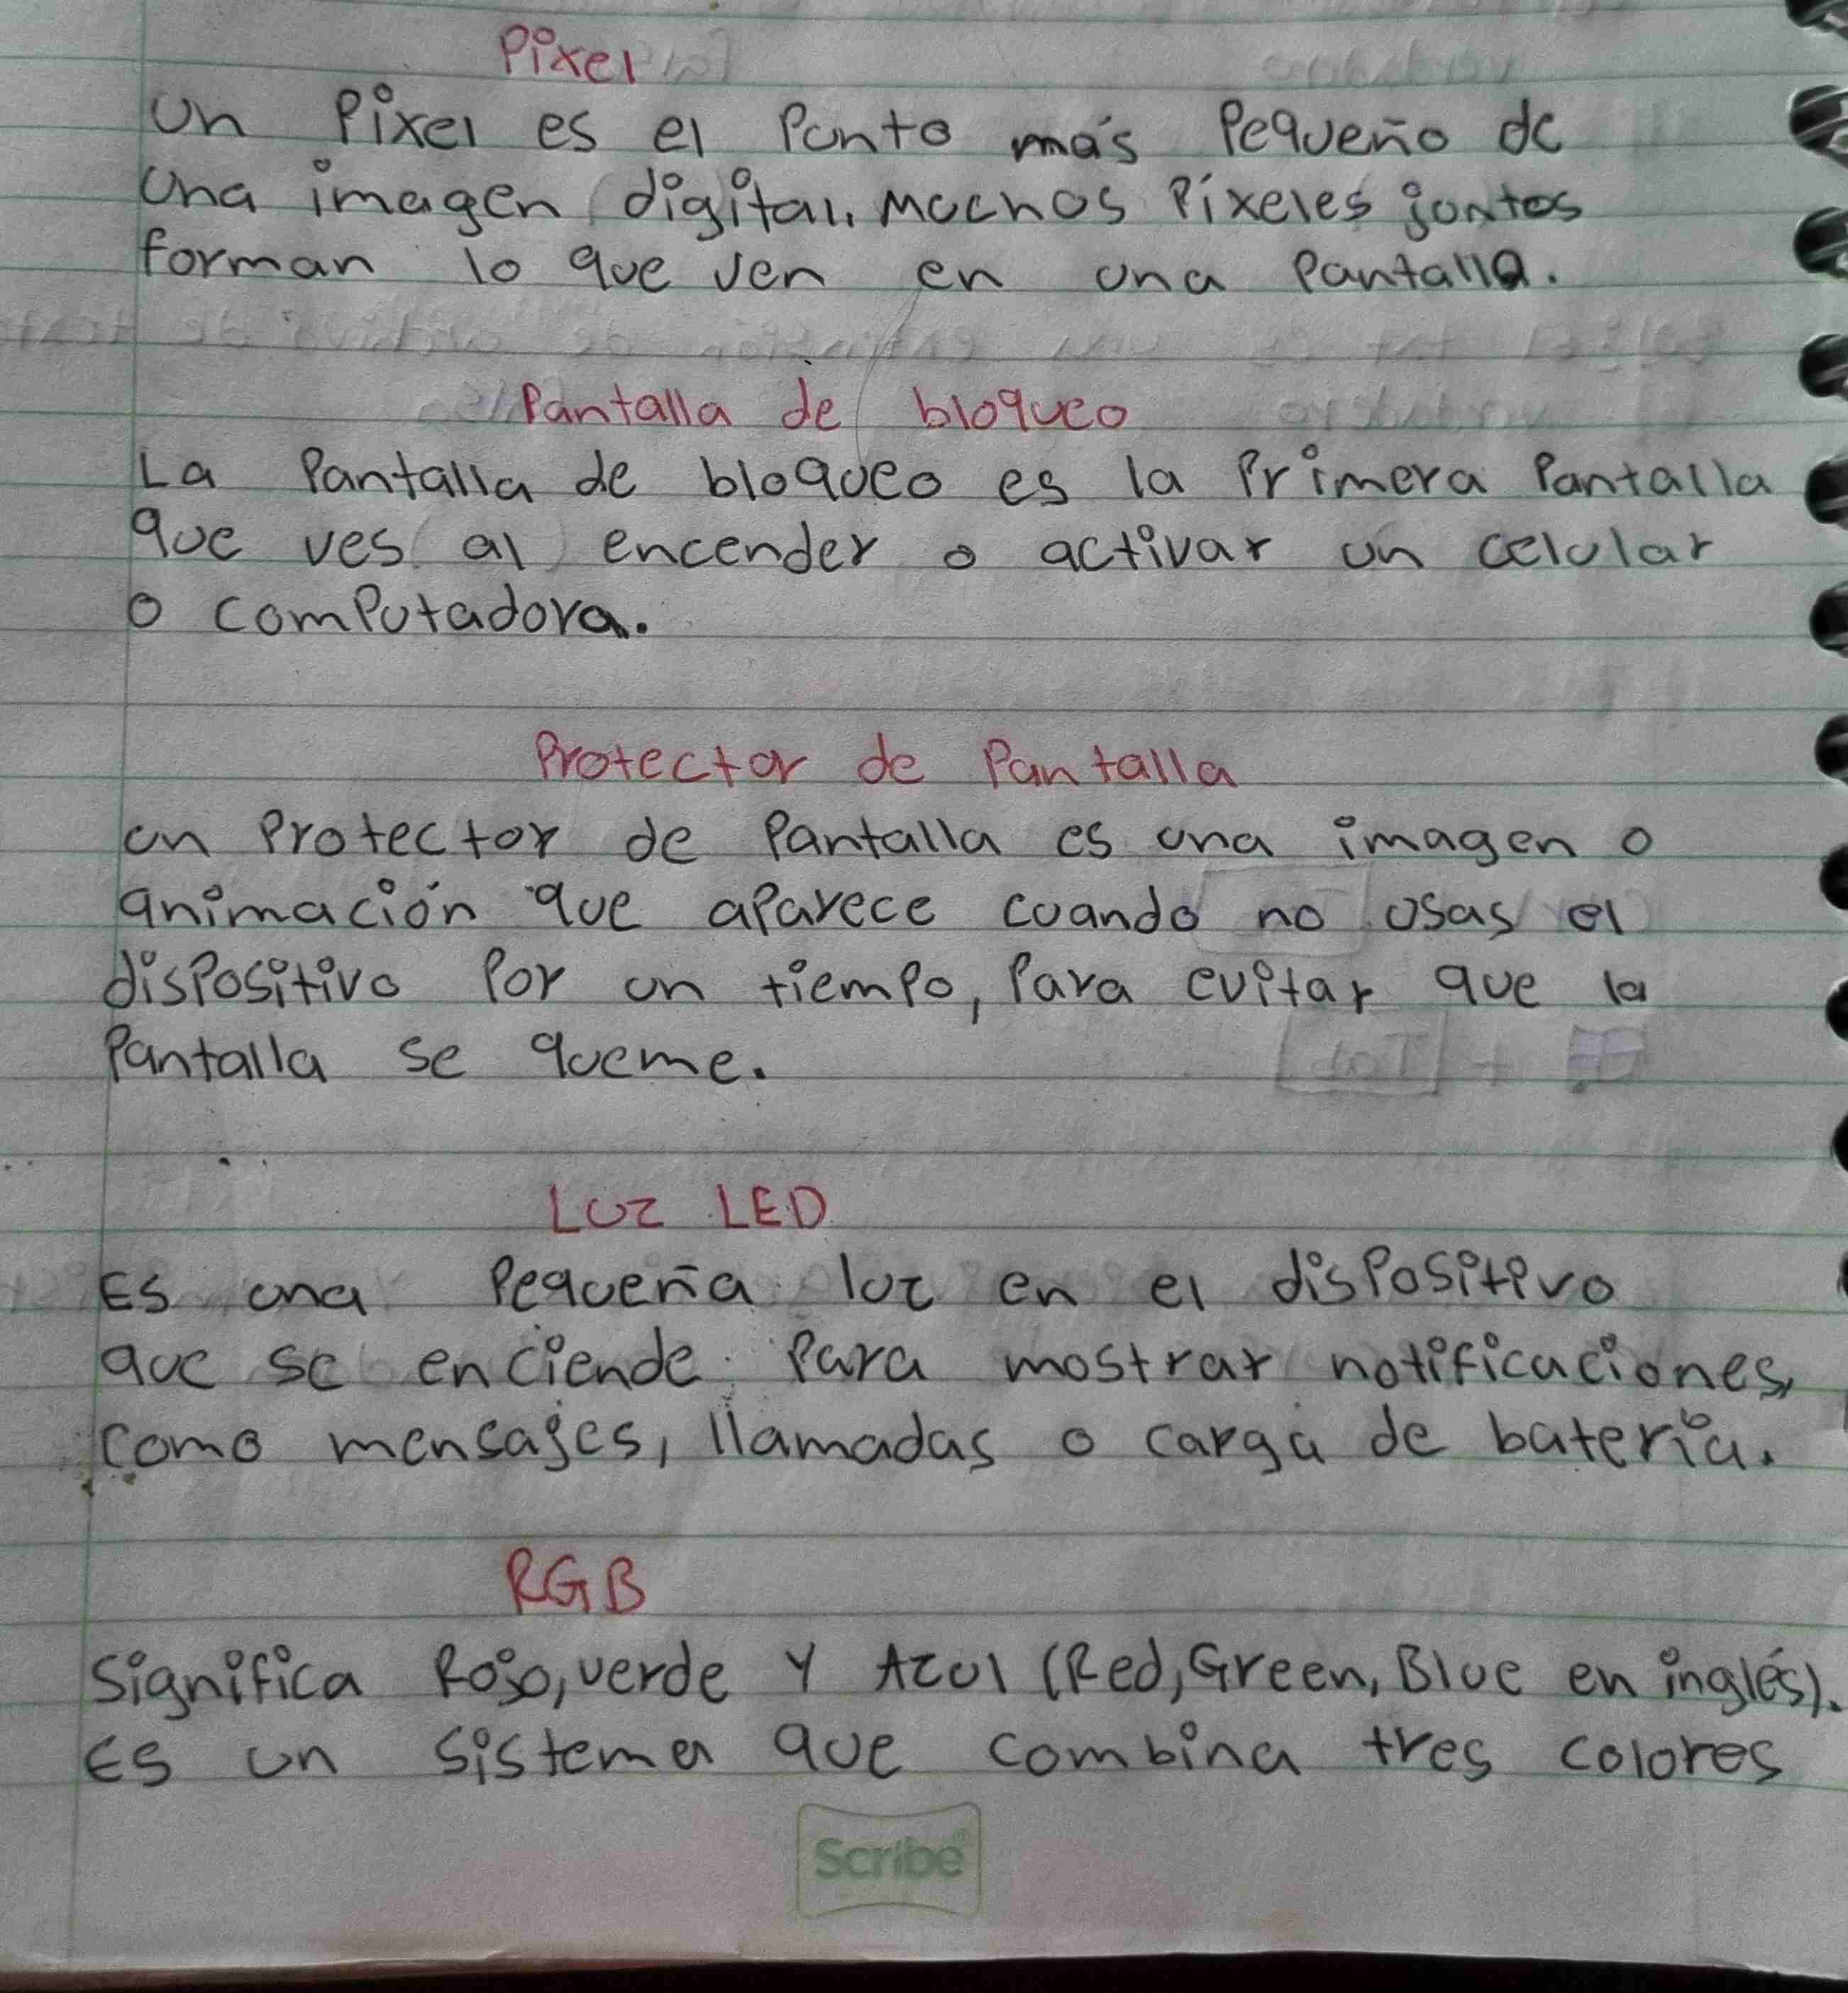 Pixel
Un Pixel es el Punto más Pequeño de
una imagen digital. Muchos Píxeles juntos
forman lo que ven en una Pantalla.
Pantalla de bloqueo
La Pantalla de bloqueo es la Primera Pantalla
que ves al encender o activar un celular
o computadora.
Protector de Pantalla
un Protector de Pantalla es una imagen o
animación que aparece cuando no usas el
dispositivo Por un tiempo, Para evitar que la
Pantalla se queme.
Luz LED
Es una Pequeña luz en el dispositivo
que se enciende Para mostrar notificaciones,
como mensajes, llamadas o carga de batería.
RGB
Significa Rojo, verde y Azul (Red, Green, Blue en inglés).
Es un sistema que combina tres colores
Scribe®